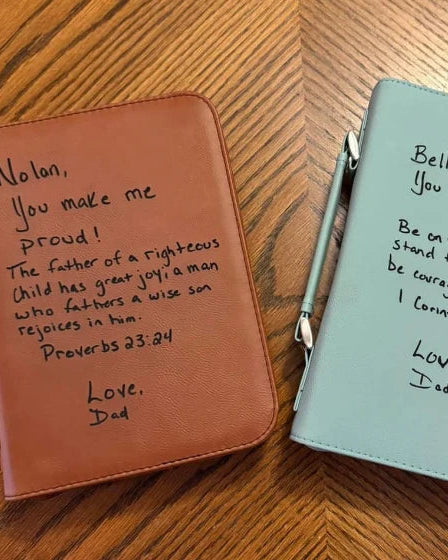 Nolan,
You make me
proud!
The father of a righteous
child has great joy; a man
who fathers a wise son
rejoices in him.
Proverbs 23:24
Love,
Dad
Bell
You
Be on
stand
be coura
1 Corin
Lov
Dad